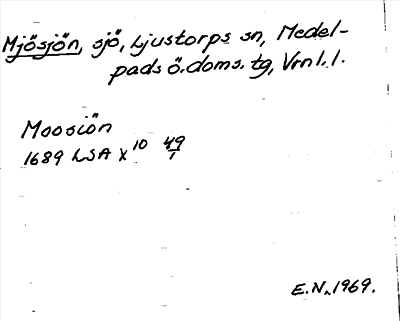 Mjösjön, sjö, Ljustorps sn, Medel-
pads ö. doms. tg, Vrnl. l.
Moosiön
1689 LSA X 10 49/1
E.N. 1969.